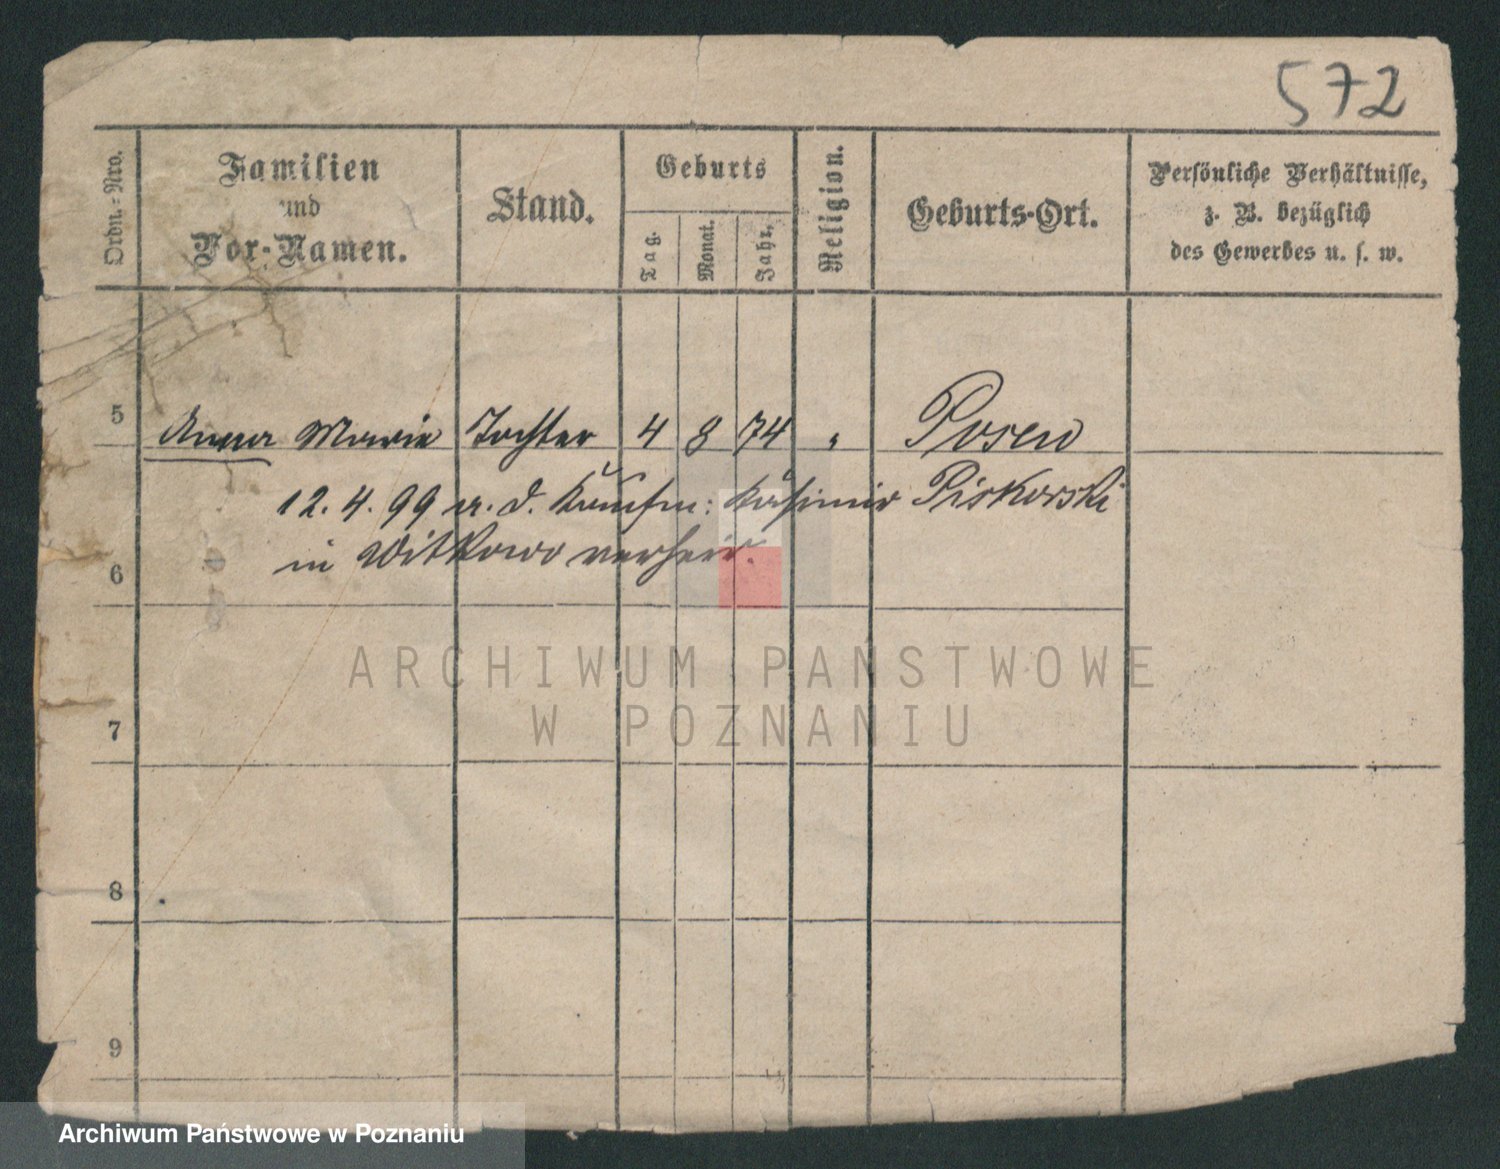 572
Ordn.-Nro.
Familien
und
Vor-Namen.
Stand.
Geburts
Tag.
Monat.
Jahr.
Religion.
Geburts-Ort.
Persönliche Verhältnisse,
z. B. bezüglich
des Gewerbes u. s. w.
5 Anna Marie Tochter 4 8 74 " Posen
12. 4. 99 a. d. Kaufm: Kasimir Piskorski
in Witkowo verheir.
6
7
8
9
ARCHIWUM PAŃSTWOWE
W POZNANIU
Archiwum Państwowe w Poznaniu